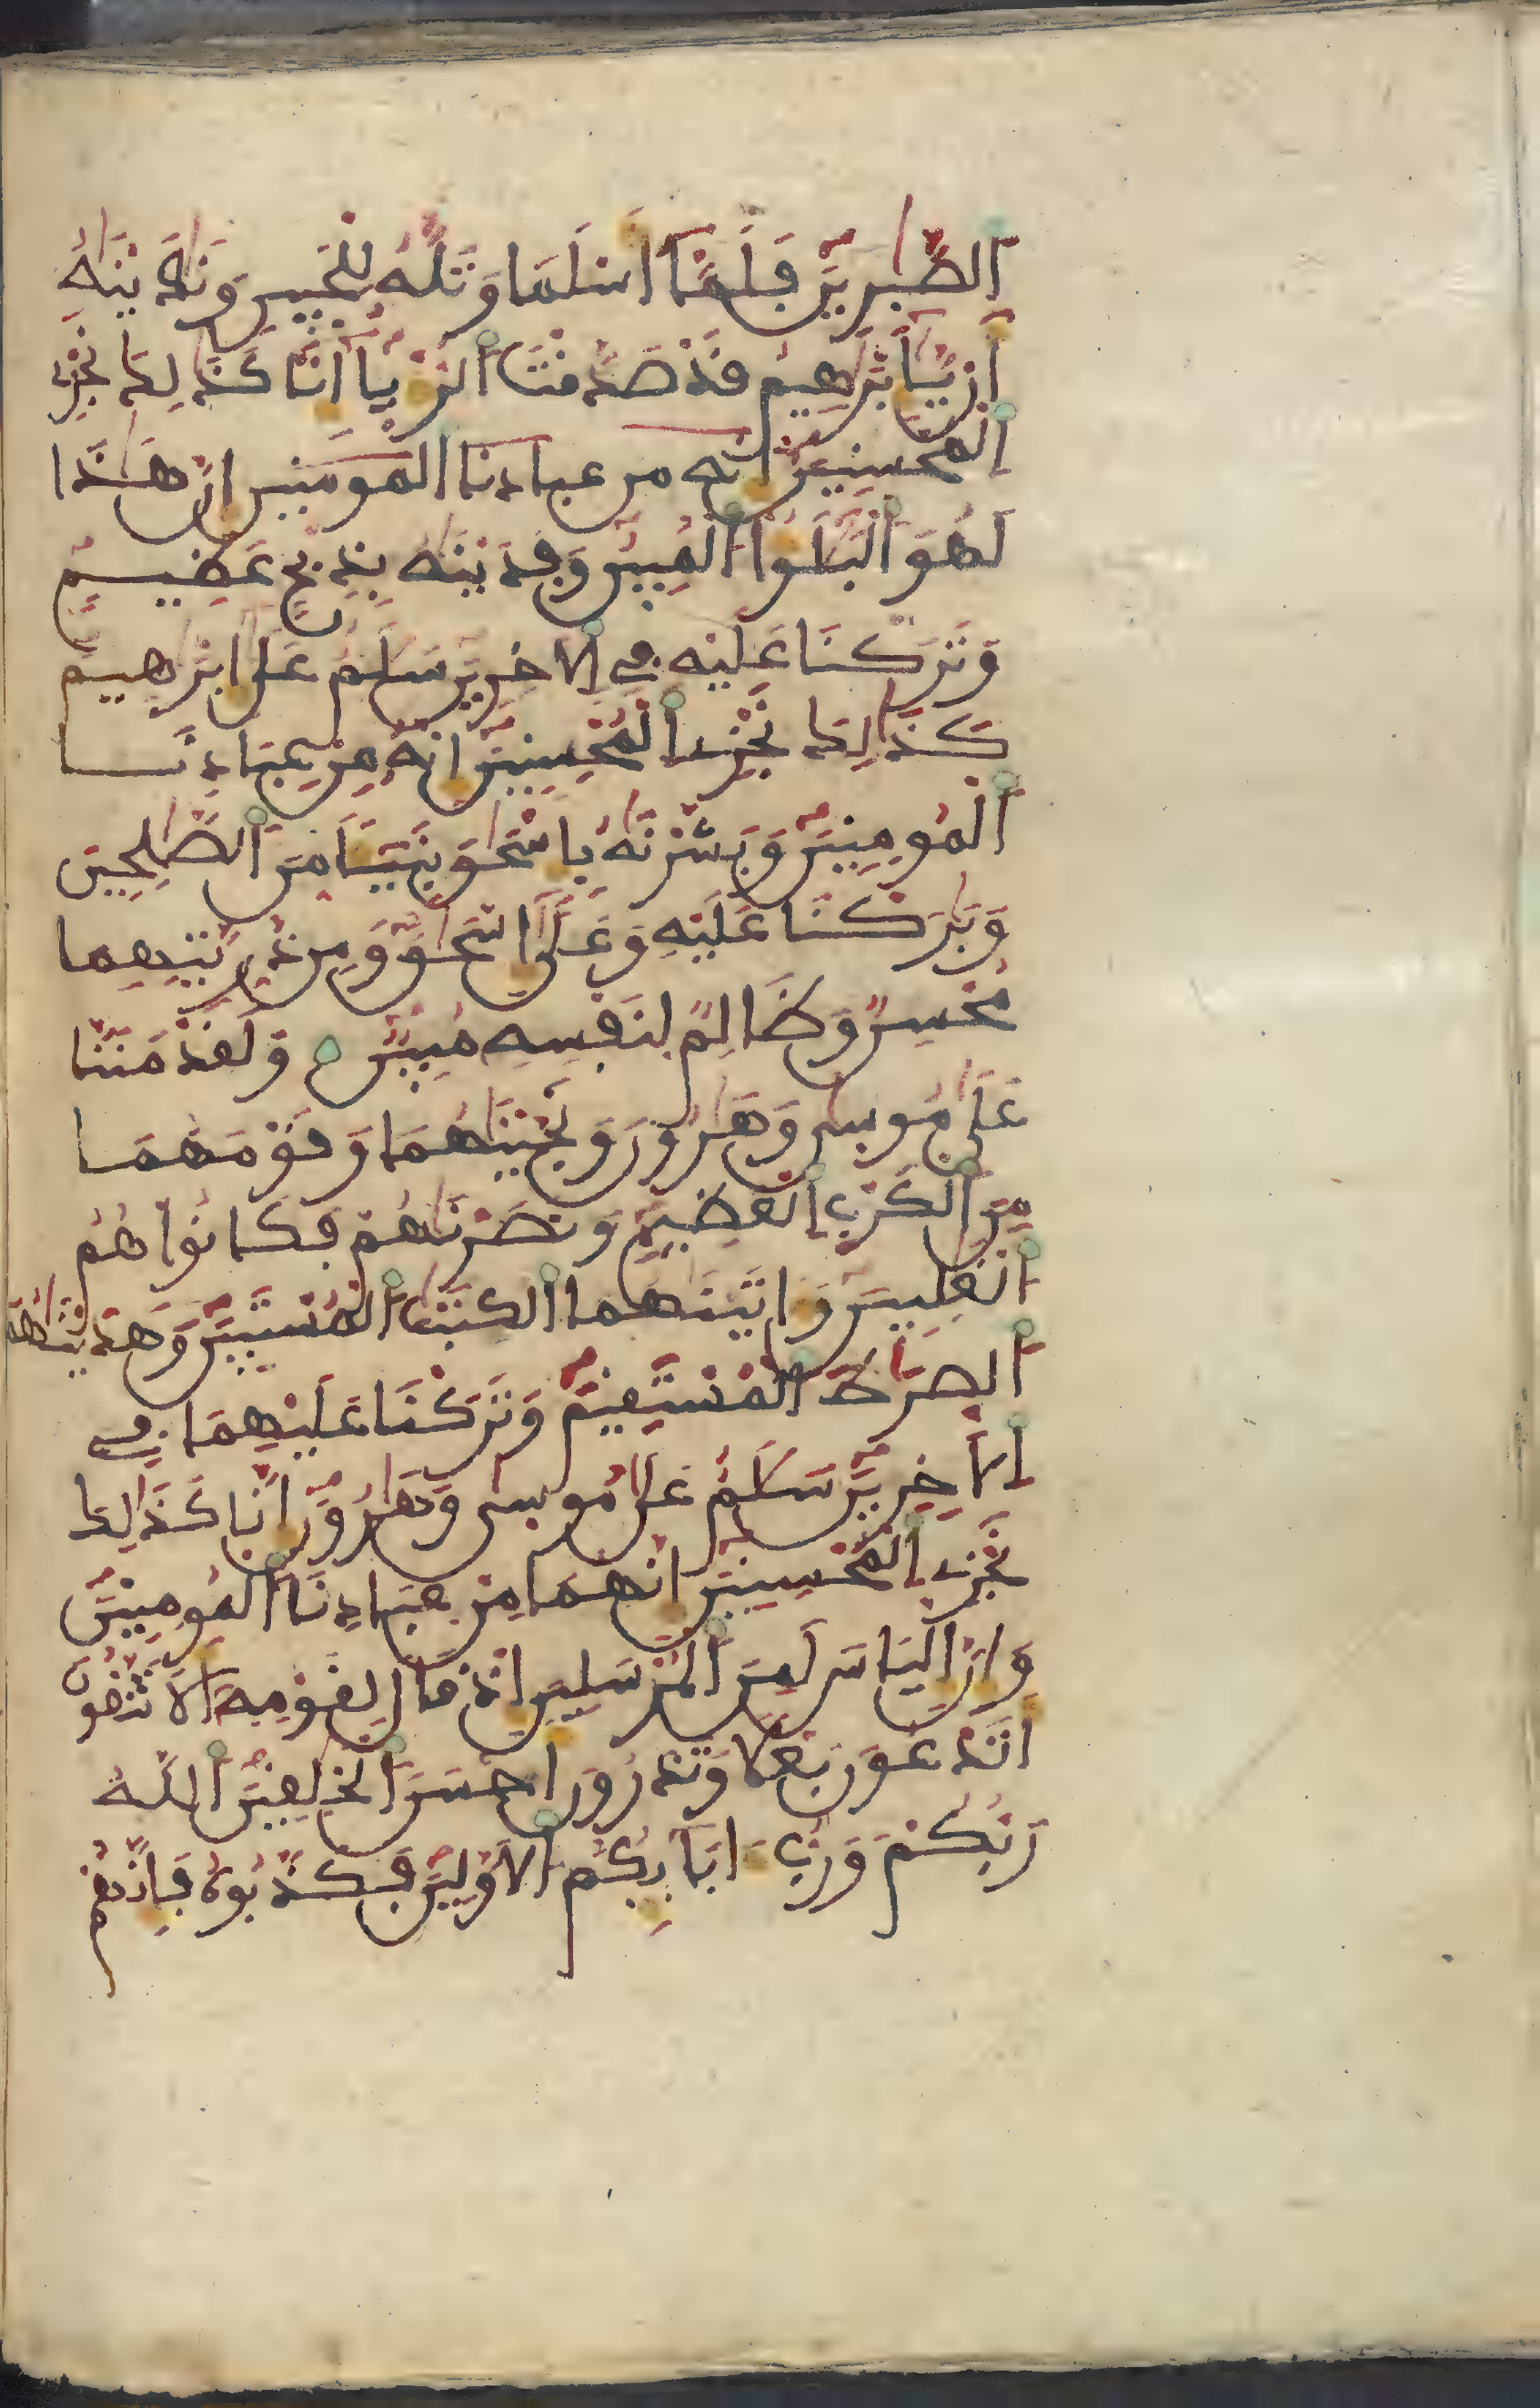 الصَّٰبِرِينَ فَلَمَّآ أَسْلَمَا وَتَلَّهُۥ لِلْجَبِينِ وَنَٰدَيْنَٰهُ
أَنْ يَّٰٓإِبْرَٰهِيمُ قَدْ صَدَّقْتَ اَلرُّءْيَآ إِنَّا كَذَٰلِكَ نَجْزِے
اِلْمُحْسِنِينَ إنه من عبادنا المومنين إِنَّ هَٰذَا
لَهُوَ اَلْبَلَٰٓؤُاْ اُلْمُبِينُ وَفَدَيْنَٰهُ بِذِبْحٍ عَظِيمٍ
وَتَرَكْنَا عَلَيْهِ فِے اِلَاخِرِينَ سَلَٰمٌ عَلَىٰٓ إِبْرَٰهِيمَ
كَذَٰلِكَ نَجْزِے اِلْمُحْسِنِينَ إِنَّهُۥ مِنْ عِبَادِنَا
اَلْمُومِنِينَ وَبَشَّرْنَٰهُ بِإِسْحَٰقَ نَبِيٓـًٔا مِّنَ اَلصَّٰلِحِينَ
وَبَٰرَكْنَا عَلَيْهِ وَعَلَىٰٓ إِسْحَٰقَ وَمِن ذُرِّيَّتِهِمَا
مُحْسِنٌ وَظَالِمٌ لِّنَفْسِهِۦ مُبِينٌ وَلَقَدْ مَنَنَّا
عَلَىٰ مُوسىٰ وَهَٰرُونَ وَنَجَّيْنَٰهُمَا وَقَوْمَهُمَا
مِنَ اَلْكَرْبِ اِلْعَظِيمِ وَنَصَرْنَٰهُمْ فَكَانُواْ هُمُ
اُلْغَٰلِبِينَ وَءَاتَيْنَٰهُمَا اَلْكِتَٰبَ اَلْمُسْتَبِينَ وَهَدَيْنَٰهُمَا
اَلصِّرَٰطَ اَلْمُسْتَقِيمَ وَتَرَكْنَا عَلَيْهِمَا فِے
اِلَاخِرِينَ سَلَٰمٌ عَلَىٰ مُوسىٰ وَهَٰرُونَ إِنَّا كَذَٰلِكَ
نَجْزِے اِلْمُحْسِنِينَ إِنَّهُمَا مِنْ عِبَادِنَا اَلْمُومِنِينَ
وَإِنَّ إِلْيَاسَ لَمِنَ اَلْمُرْسَلِينَ إِذْ قَالَ لِقَوْمِهِۦٓ أَلَا تَتَّقُونَ
أَتَدْعُونَ بَعْلًا وَتَذَرُونَ أَحْسَنَ اَلْخَٰلِقِينَ اَللَّهُ
رَبُّكُمْ وَرَبُّ ءَابَآئِكُمُ اُلَاوَّلِينَ فَكَذَّبُوهُ فَإِنَّهُمْ